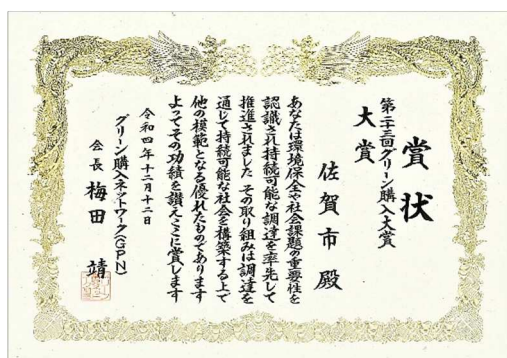 賞状
第二十三回グリーン購入大賞
大賞
佐賀市殿
あなたは環境保全や社会課題の重要性を
認識され持続可能な調達を率先して
推進されました その取り組みは調達を
通じて持続可能な社会を構築する上で
他の模範となる優れたものであります
よってその功績を讃えここに賞します
令和四年十二月十二日
グリーン購入ネットワーク(GPN)
会長 梅田 靖